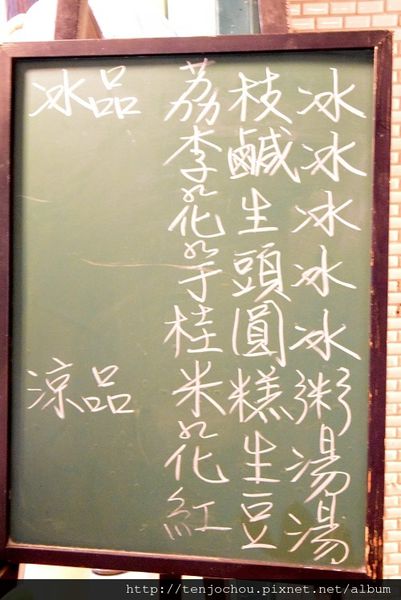 冰品
荔枝冰
李鹹冰
花生冰
芋頭冰
桂圓冰
涼品
米糕粥
花生湯
紅豆湯
http://tenjochou.pixnet.net/album